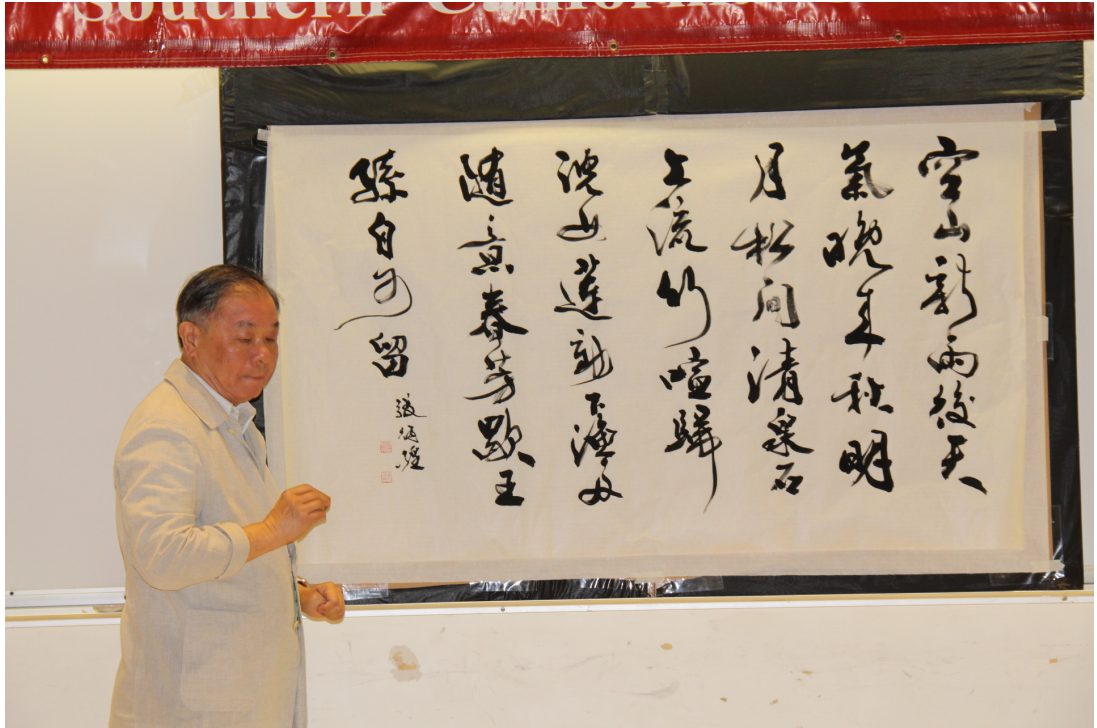 Southern California
空山新雨後天
氣晚來秋明
月松間清泉石
上流竹喧歸
浣女蓮動下漁舟
隨意春芳歇王
孫自可留
張炳煌